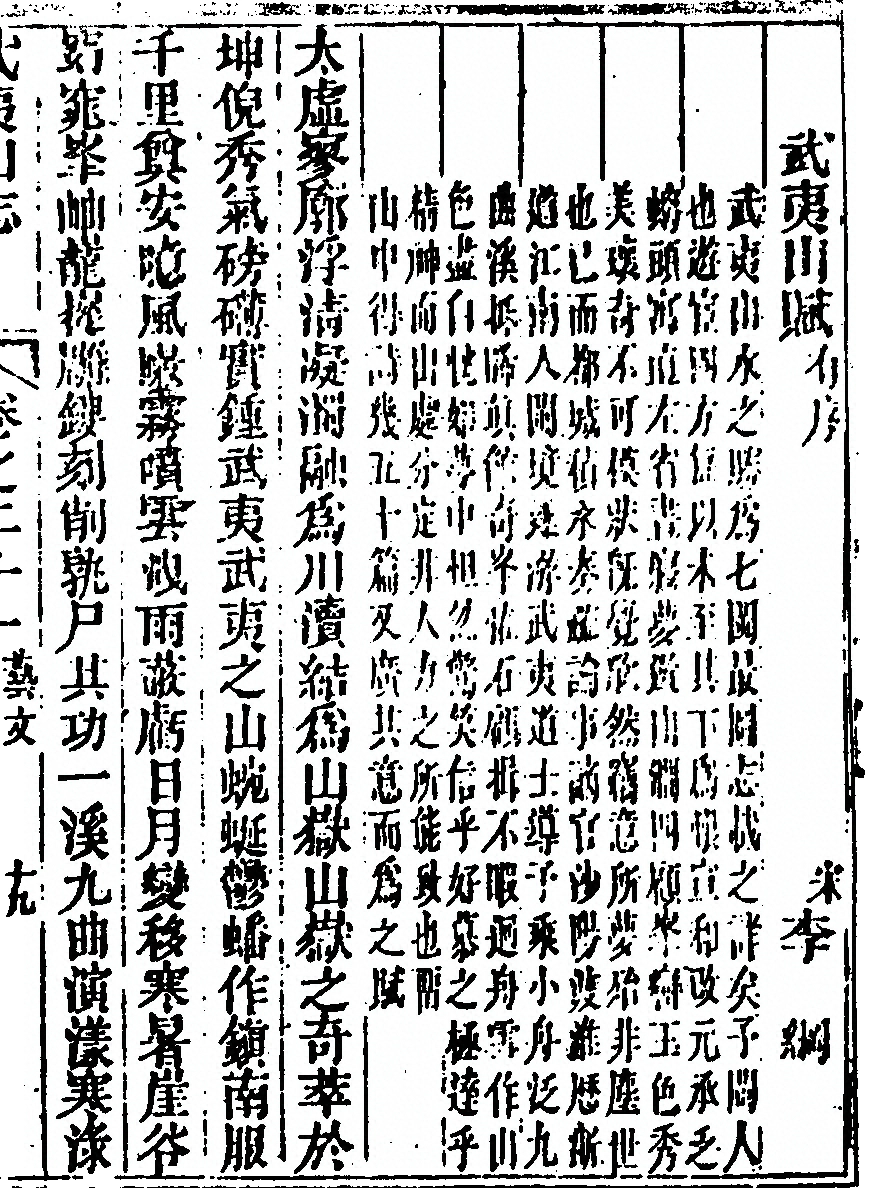 武夷山賦有序 宋李綱
武夷山水之勝為七閩最圖志載之詳矣予閩人
也遊官四方恨以未至其下為恨宣和改元承乏
螭頭寓直左省晝寢夢遊山澗四顧峯巒玉色秀
美瓌奇不可模狀既覺欣然猶意所夢殆非塵世
也已而都城積水奏疏論事謫官沙陽雙離歷
道江南人閩境遂游武夷道士導予乘小舟泛九
曲溪抵 真 奇峯怪石顧揖不暇廻舟 作山
色盡白恍如夢中怛然驚笑信乎好慕之極達乎
精神而出處分定非人力之所能致也留
山中得詩幾五十篇又廣其意而為之賦
太虛寥廓浮清凝濁融為川瀆結為山嶽山嶽之奇萃於
坤倪秀氣磅礴實鍾武夷武夷之山蜿蜒鬱蟠作鎮南服
千里與安 風 霧噴雲 雨蔽虧日月變移寒暑崖谷
龍 雕鎪刻削孰尸其功一溪九曲演漾寒淥
武夷山志 卷之二十一 藝文 十九